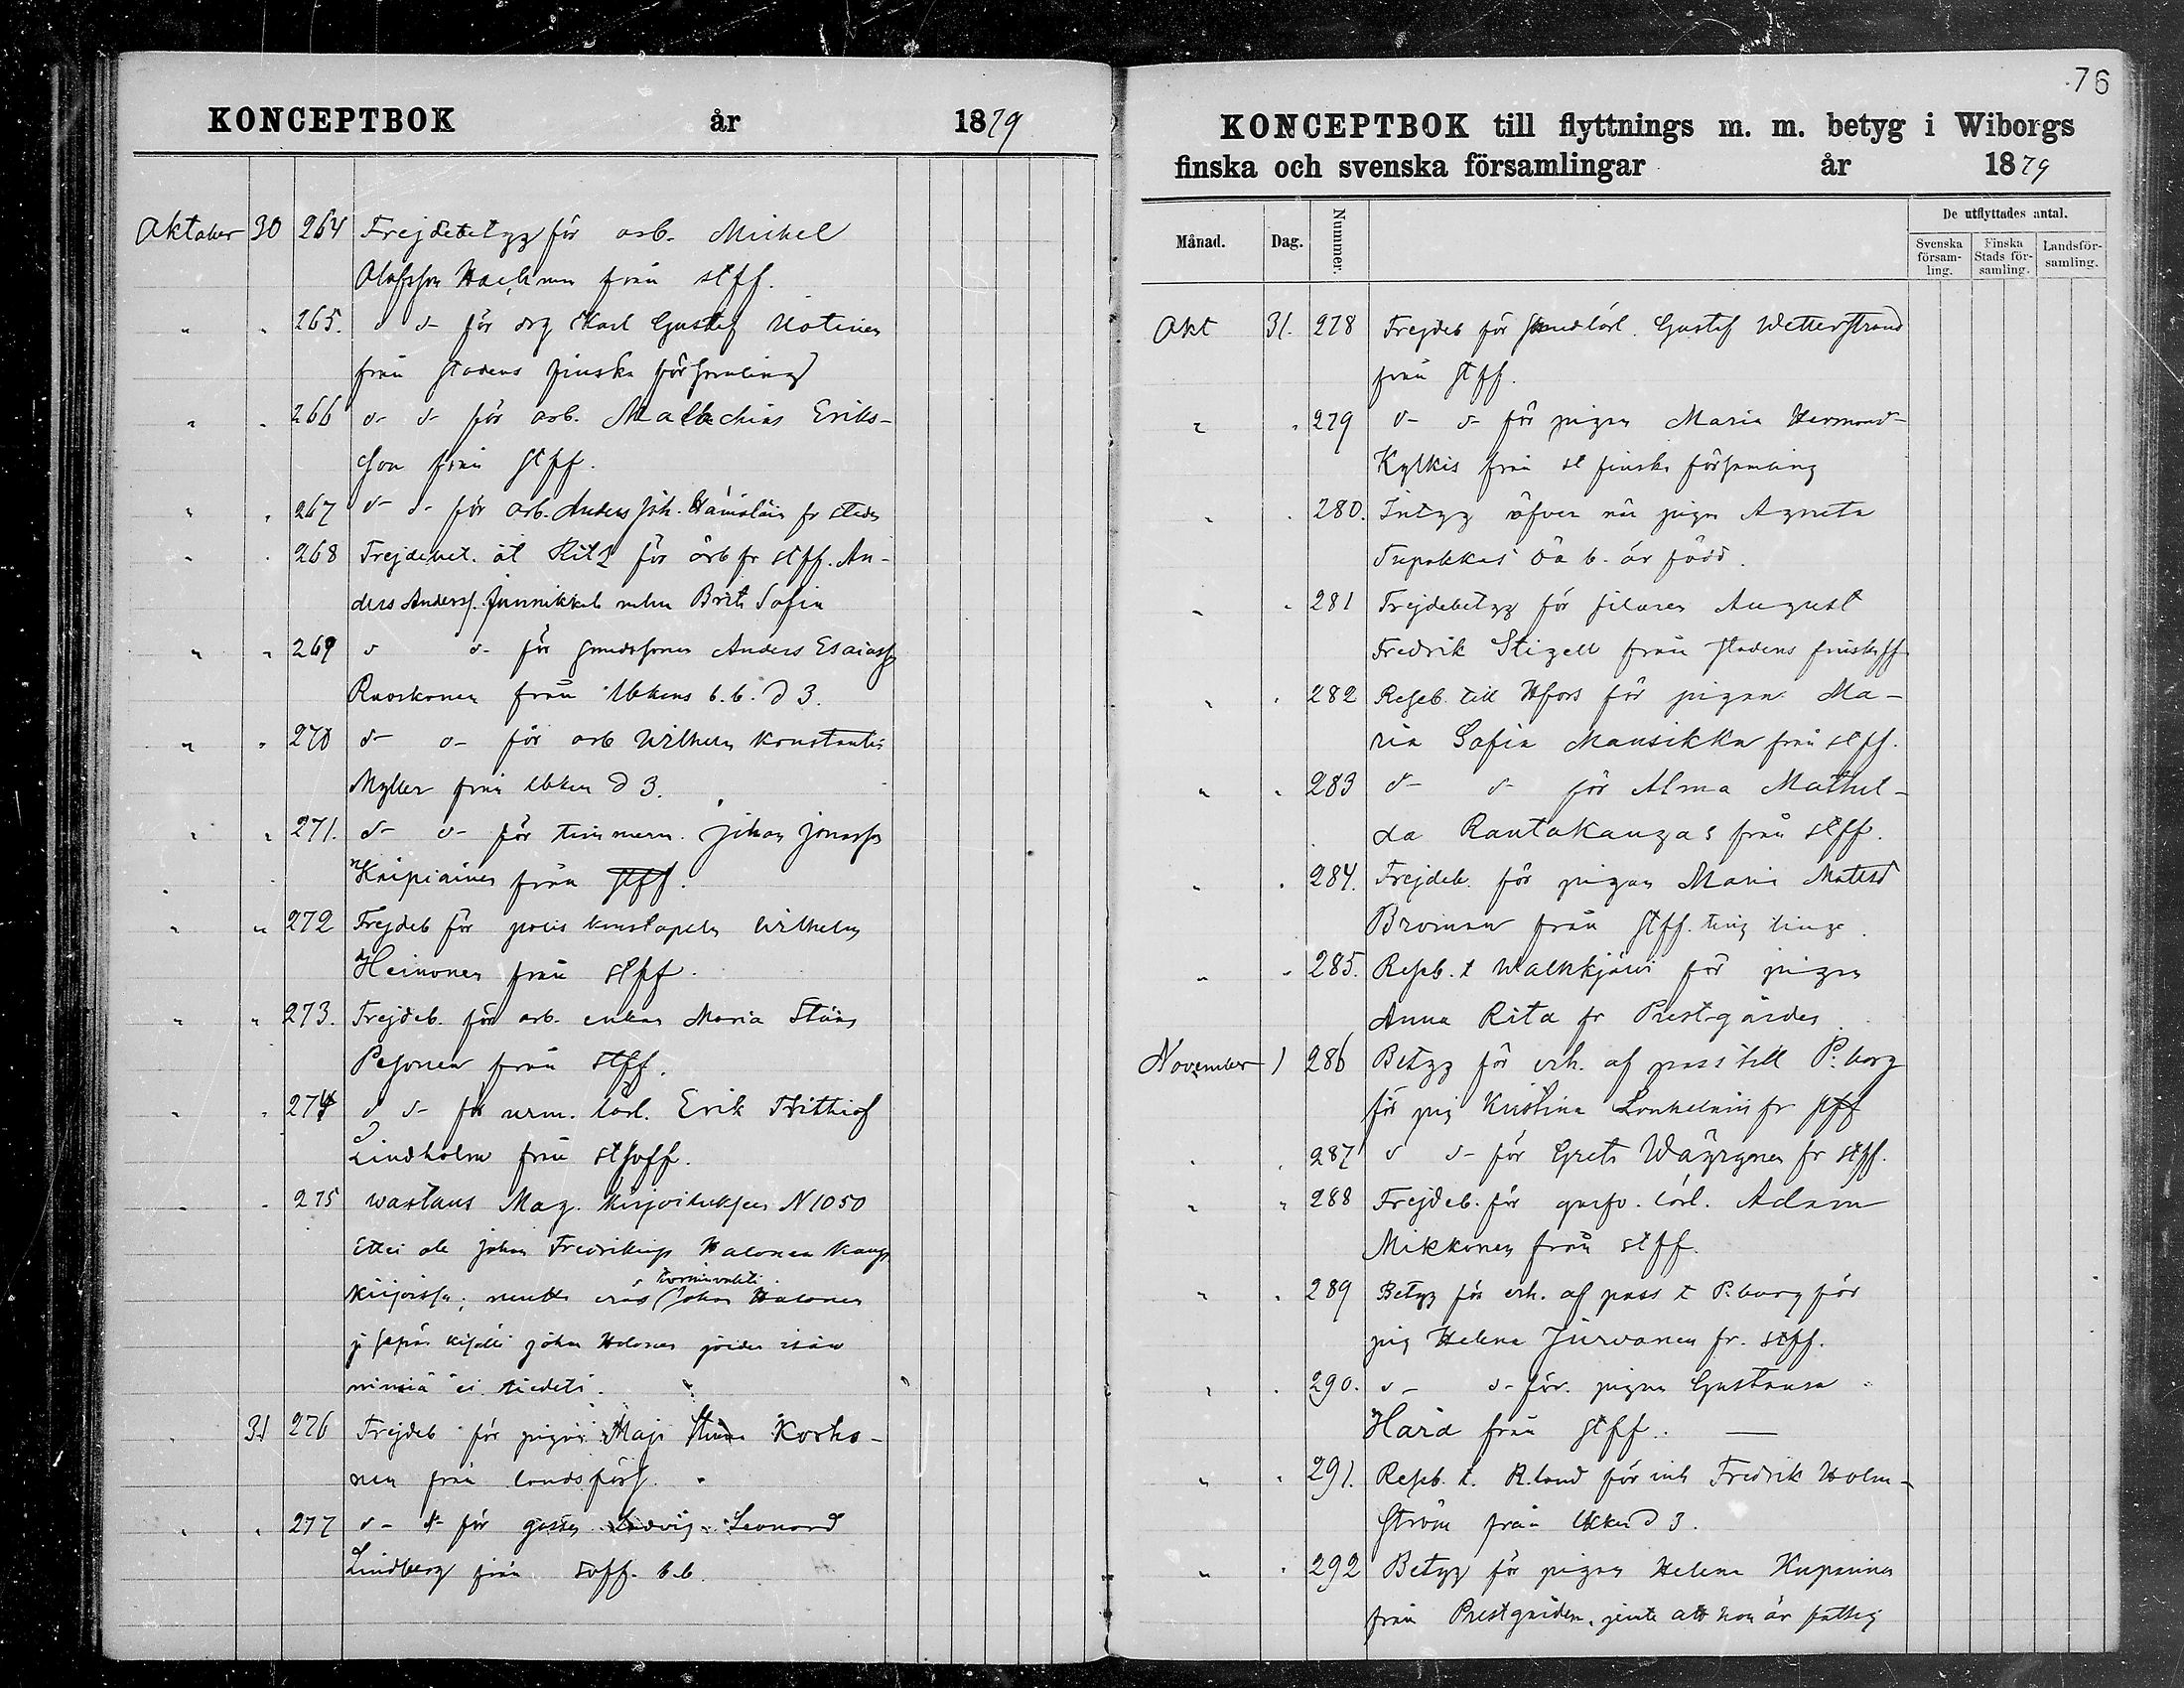 KONCEPTBOK år 1879
Oktober 30 264 Frejdebetyg för arb. Mickel
Olofsson från stff.
" " 265. d d- för drg Karl Gustaf Uotinen
från stadens finska församling
" " 266 d- d- för arb. Malachias Eriks-
son från stff.
" " 267 d- d- för arb. Anders Joh. Hämäläin fr stadens
" " 268 Frejdebet. åt Kitz för arb fr stff. An-
ders Anderss. Junnikkala Brita Sofia
" " 269 d d- för Anders Esaiass
Ruoskonen från b.b. d 3.
" " 270 d- d- för arb Wilhelm Konstantin
Myller från d 3.
" " 271. d- d- för timmerm. Johan Jonass
Kaipiainen från stff.
" " 272 Frejdeb för polis konstapeln Wilhelm
Heinonen från stff.
" " 273. Frejdeb. för arb. enkan Maria Stina
Pesonen från stff.
" " 274 d d- för urm. lärl. Erik Frithiof
Lindholm från stsvff.
" " 275 Wastaus Mag. N 1050
Ettei ole Johan Fredrikinp Halonen
Kirjoissa; mutta eräs Johan Halonen
ja sepän kisälli Johan Halonen joiden isän
nimiä ei tiedetä.
" 31 276 Frejdeb för pigan Maja Stina Korho-
nen från landsförs.
" " 277 d- d- för gossen Ludvig Leonard
Lindberg från svff. b.b.
76
KONCEPTBOK till flyttnings m. m. betyg i Wiborgs
finska och svenska församlingar år 1879
Månad. Dag. Nummer. De utflyttades antal.
Svenska församling. Finska Stads församling. Landsförsamling.
Okt 31. 278 Frejdeb för smedlärl. Gustaf Wetterstrand
från stff.
" " 279 d- d- för pigan Maria Hermansd-
Kylkis från st finska församling
" " 280. Intyg öfver när pigan Agneta
oä b. är född.
" " 281 Frejdebetyg för filaren August
Fredrik Stigell från stadens finska ff
" " 282 Reseb. till Hfors för pigan Ma-
ria Sofia Mansikka från stff.
" " 283 d- d- för Alma Mathil-
da Rautakangas från stff.
" " 284. Frejdeb. för pigan Maria Matsd
Broman från stff. ting linge.
" " 285. Reseb. t Walkkjärvi för pigan
Anna Rita fr Prestgården
November 1 286 Betyg för erh. af pass till P:borg
för pig Kristina fr stff
" " 287 d d- för Greta Wäyrynen fr stff.
" " 288 Frejdeb. för garfv. lärl. Adam
Mikkonen från stff.
" " 289 Betyg för erh. af pass t P.burg för
pig Helena Jurvanen fr. stff.
" " 290. d- d- för pigan Gustava
Härä från stff.
" " 291. Reseb. t. R.land för inh Fredrik Holm-
ström från d 3.
" " 292 Betyg för pigan Helena Kuparinen
från Prestgården, jemte att hon är fattig